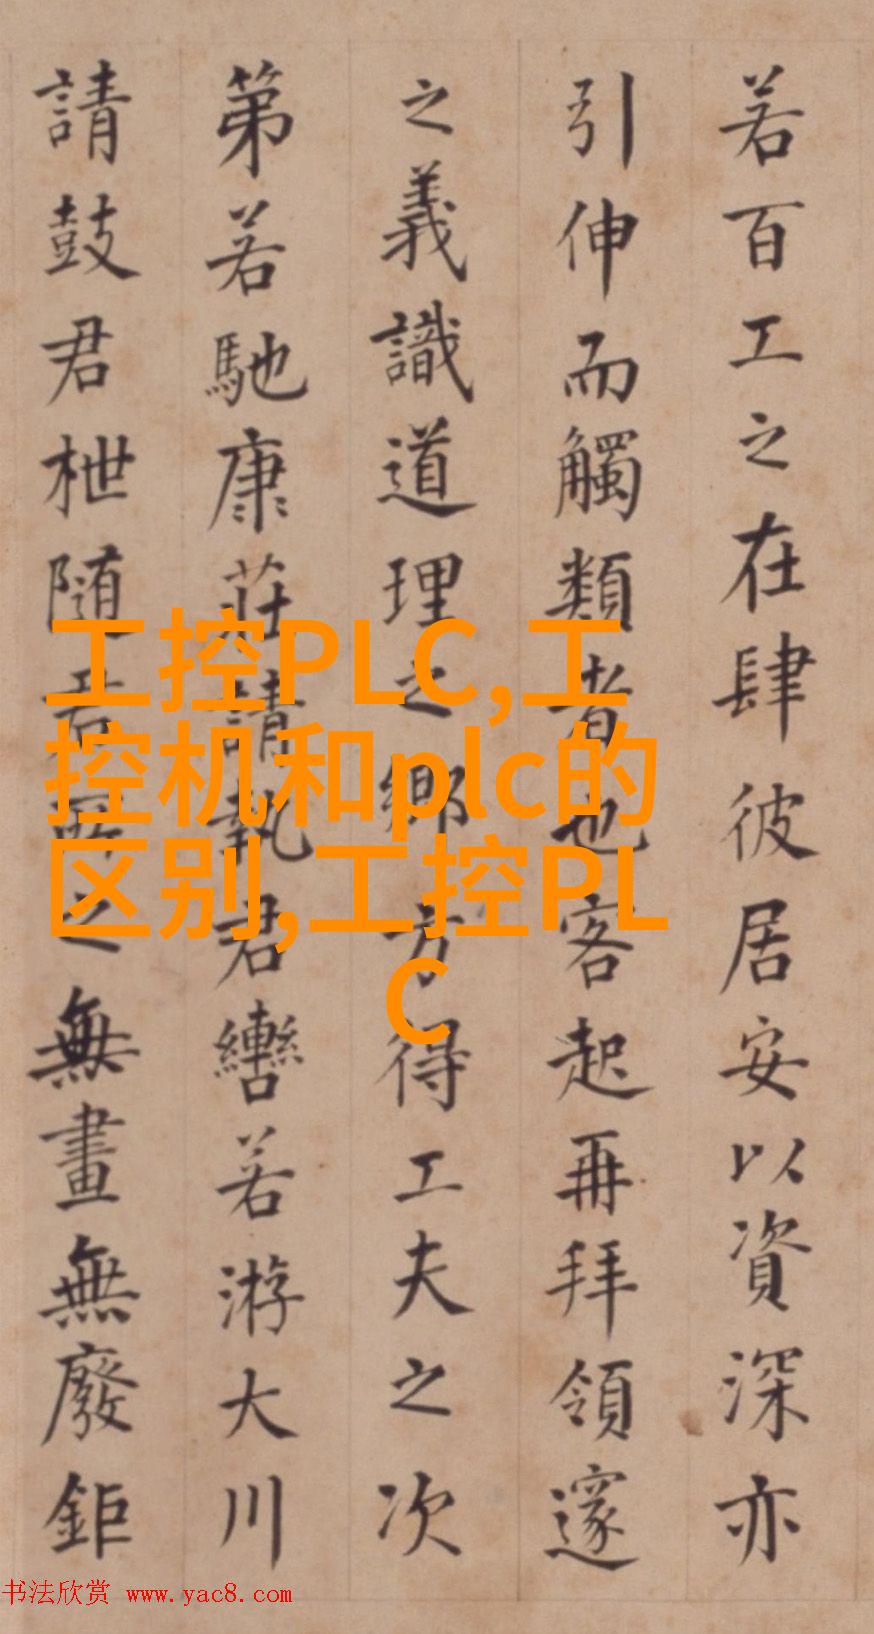 若百工之在肆彼居安以資深亦
引伸而觸類者也客起再拜領邃
之義識道理之鄉方得工夫之次
第若馳康莊請執君轡若游大川
請鼓君枻随君所之無畫無廢鉅
工控PLC,工
控机和plc的
区别,工控PL
C
书法欣赏 www.yac8.com